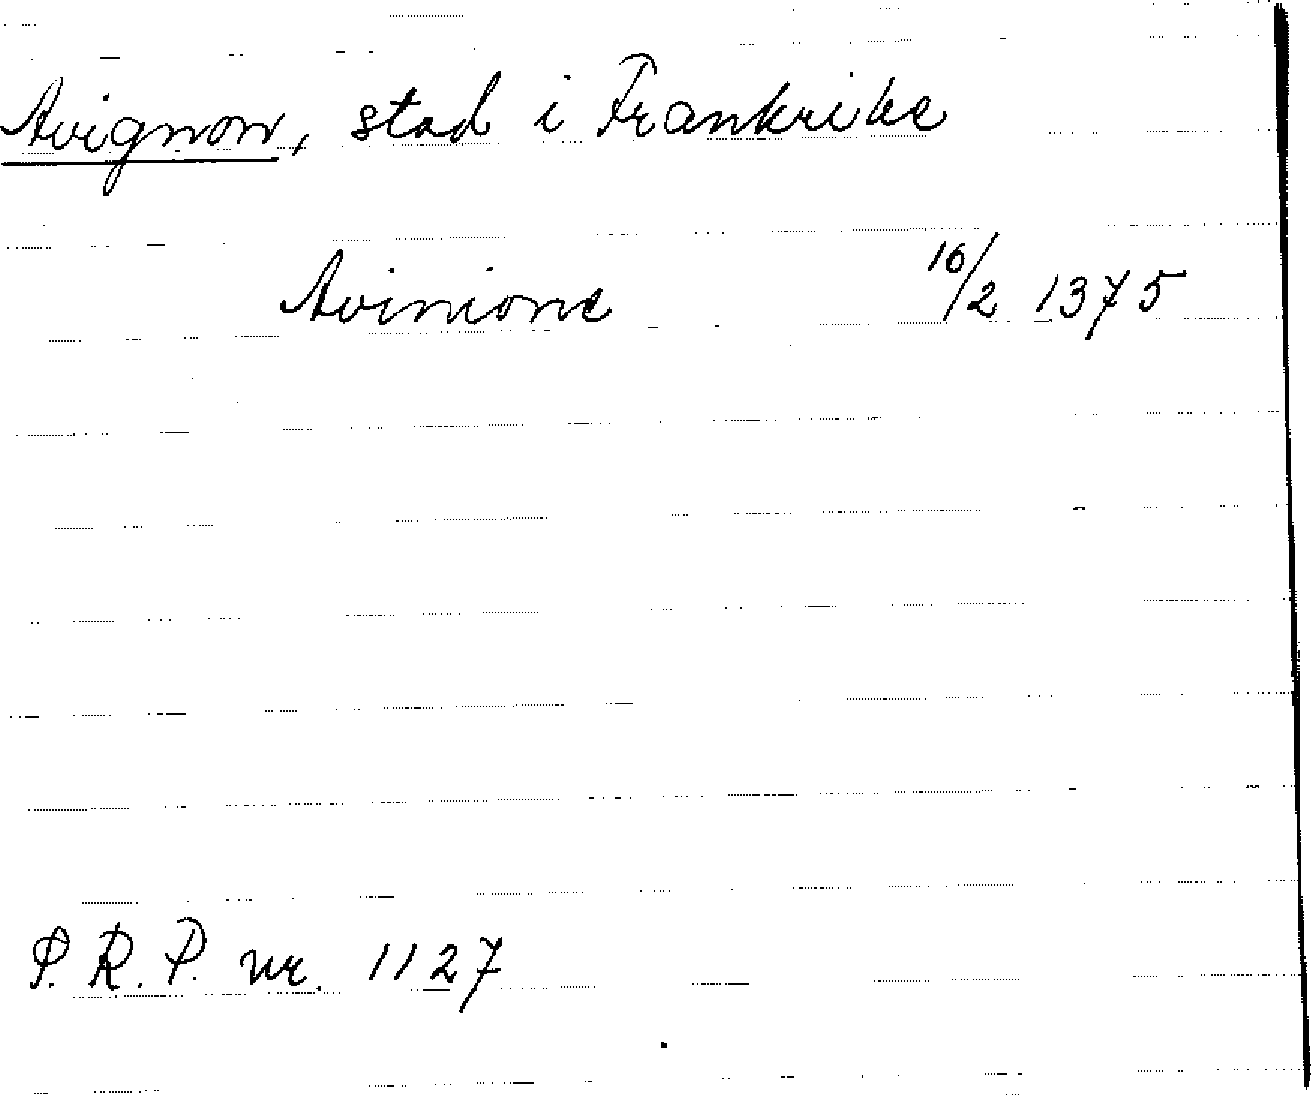 Avignon, stad i Frankrike
Avinione 16/2 1375
S.R.P. nr. 1127